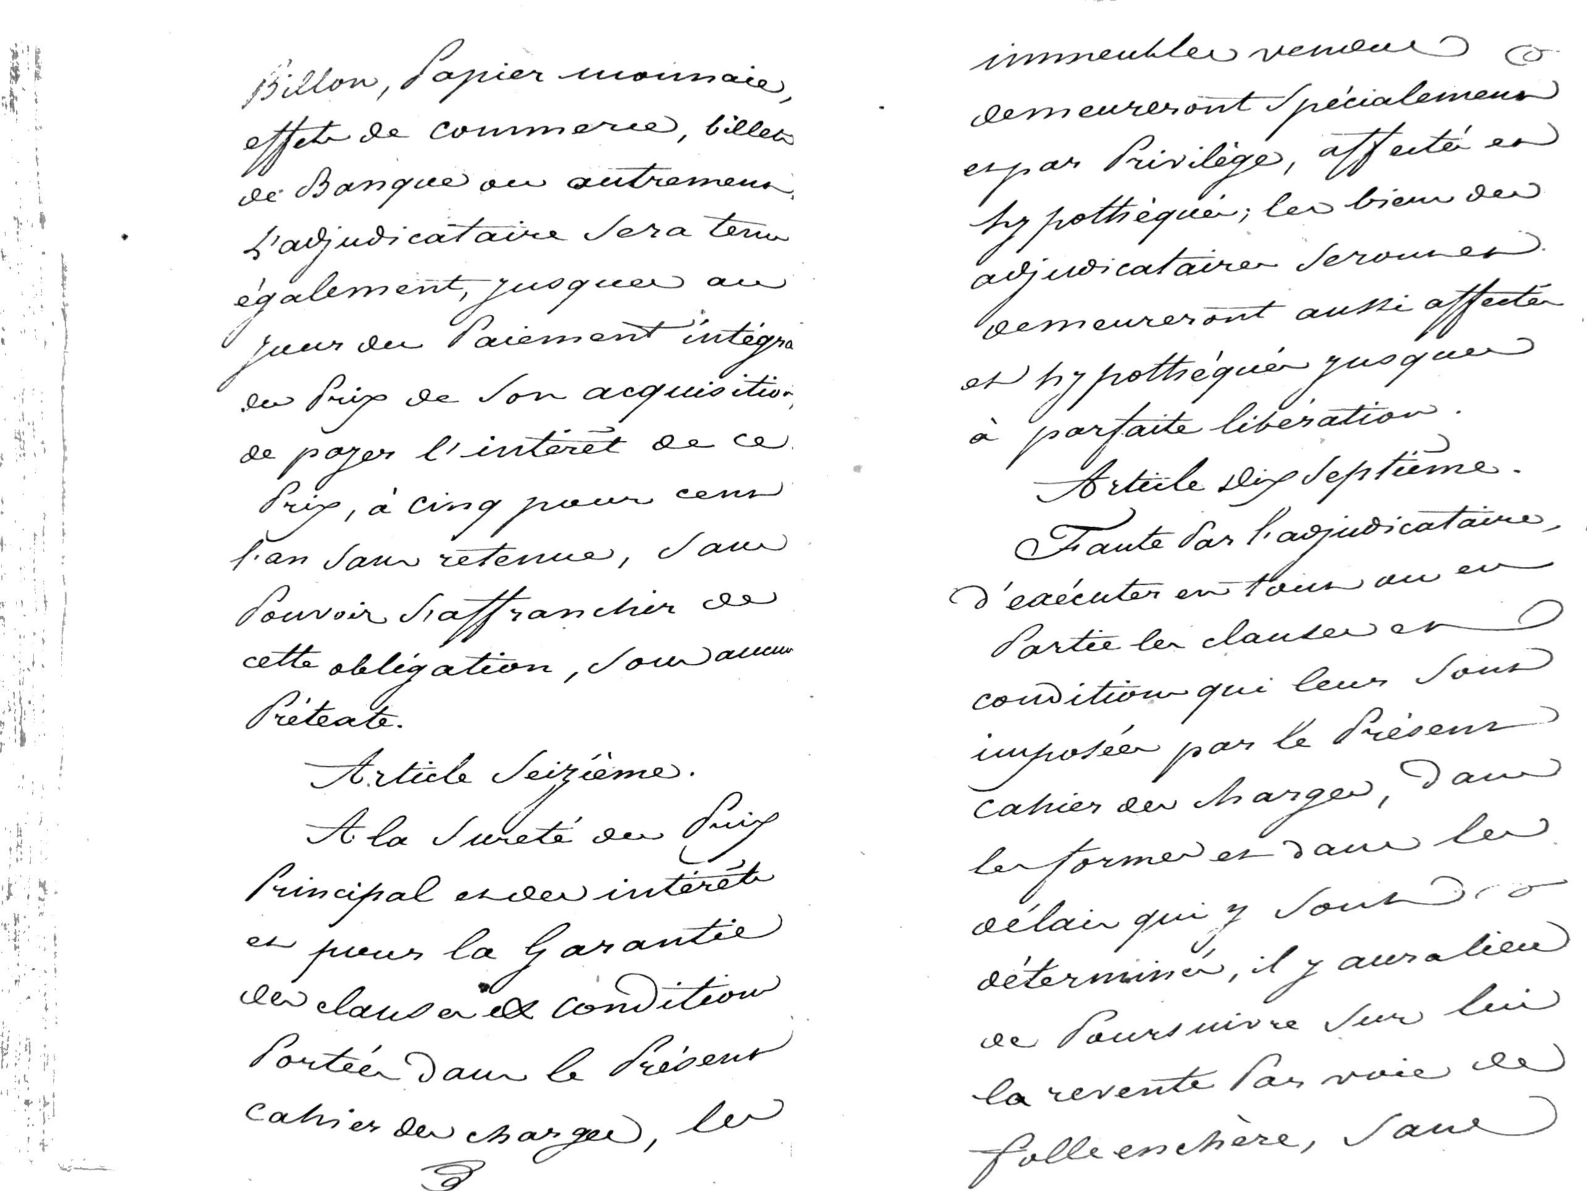 Billon, Papier monnaie,
effets de commerce, billets
de Banque ou autrement.
L'adjudicataire sera tenu
également, jusques au
jour du Paiement intégra
du Prix de son acquisition,
de payer l'intérêt de ce
Prix, à cinq pour cent
l'an sans retenue, sans
Pouvoir s'affranchir de
cette obligation, sous aucun
Prétexte.
Article Seizième.
A la sureté du Prix
Principal et des intérêts
et pour la Garantie
des clauses et conditions
Portées dans le Présent
cahier des charges, les
immeubles vendus
demeureront Spécialement
et par Privilège, affectés et
hypothéqués; les biens des
adjudicataires seront et
demeureront aussi affectés
et hypothéqués jusques
à parfaite libération.
Article Dix Septième.
Faute Par l'adjudicataire,
d'exécuter en tout ou en
Partie les clauses et
conditions qui leur sont
imposées par le Présent
cahier des charges, dans
les formes et dans les
délais qui y sont
déterminés, il y aura lieu
de Poursuivre sur lui
la revente Par voie de
folle enchère, sans